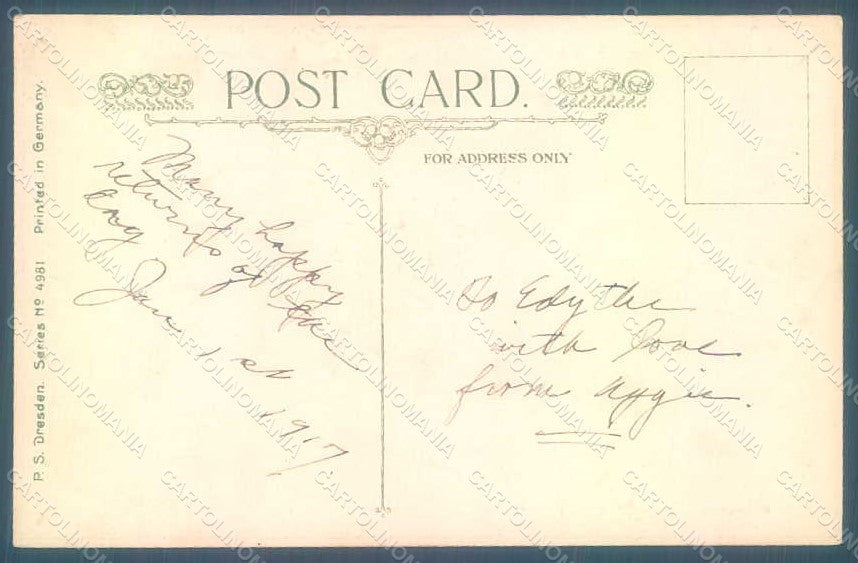 POST CARD.
FOR ADDRESS ONLY
Many happy
returns of the
day
Jan 1st 1917
To Edythe
with love
from Aggie.
P. S. Dresden. Series Nº 4981 Printed in Germany.
CARTOLINOMANIA